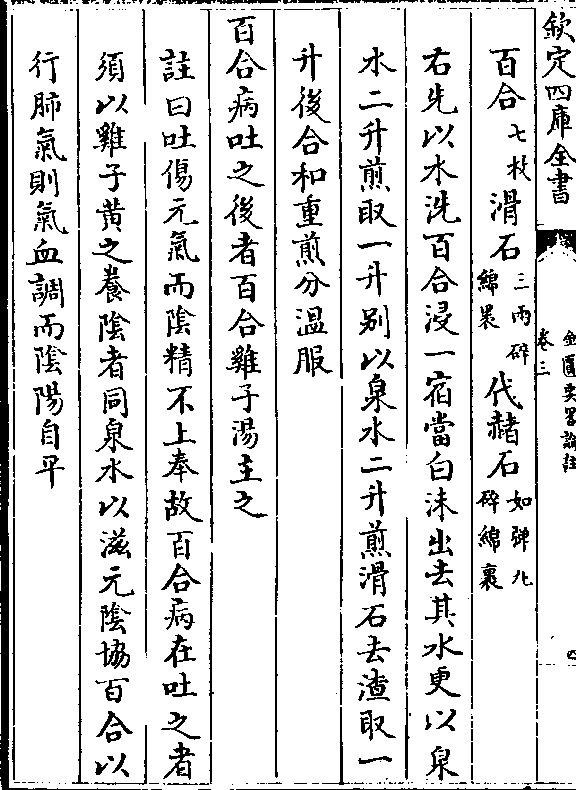 欽定四庫全書
金匱要畧論註
卷三
四
百合七枚 滑石三兩碎綿裹 代赭石如弹丸碎綿裹
右先以水洗百合浸一宿當白沫出去其水更以泉
水二升煎取一升别以泉水二升煎滑石去渣取一
升後合和重煎分溫服
百合病吐之後者百合雞子湯主之
註曰吐傷元氣而陰精不上奉故百合病在吐之者
須以雞子黄之養陰者同泉水以滋元陰協百合以
行肺氣則氣血調而陰陽自平